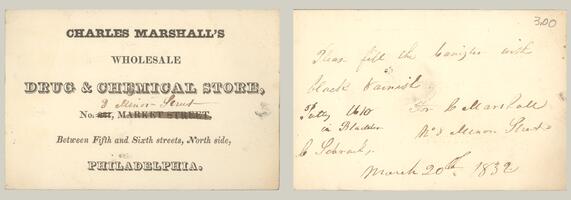 CHARLES MARSHALL'S
WHOLESALE
DRUG & CHEMICAL STORE,
3 Minor Street
No. 211, MARKET STREET
Between Fifth and Sixth streets, North side,
PHILADELPHIA.
300
Please fill the Canister with
black Varnish
Putty 16 10 For C Marshall
in Bladder No 3 Minor Street
C Schrack,
March 20th 1832